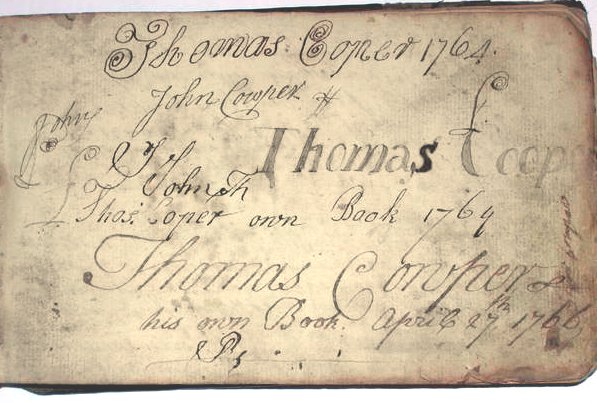 Thomas Coper 1764.
John Cowper
John
Thomas Coop
John Th
Thos. Coper own Book 1764
Thomas Cowper
his own Book. April 27th 1766